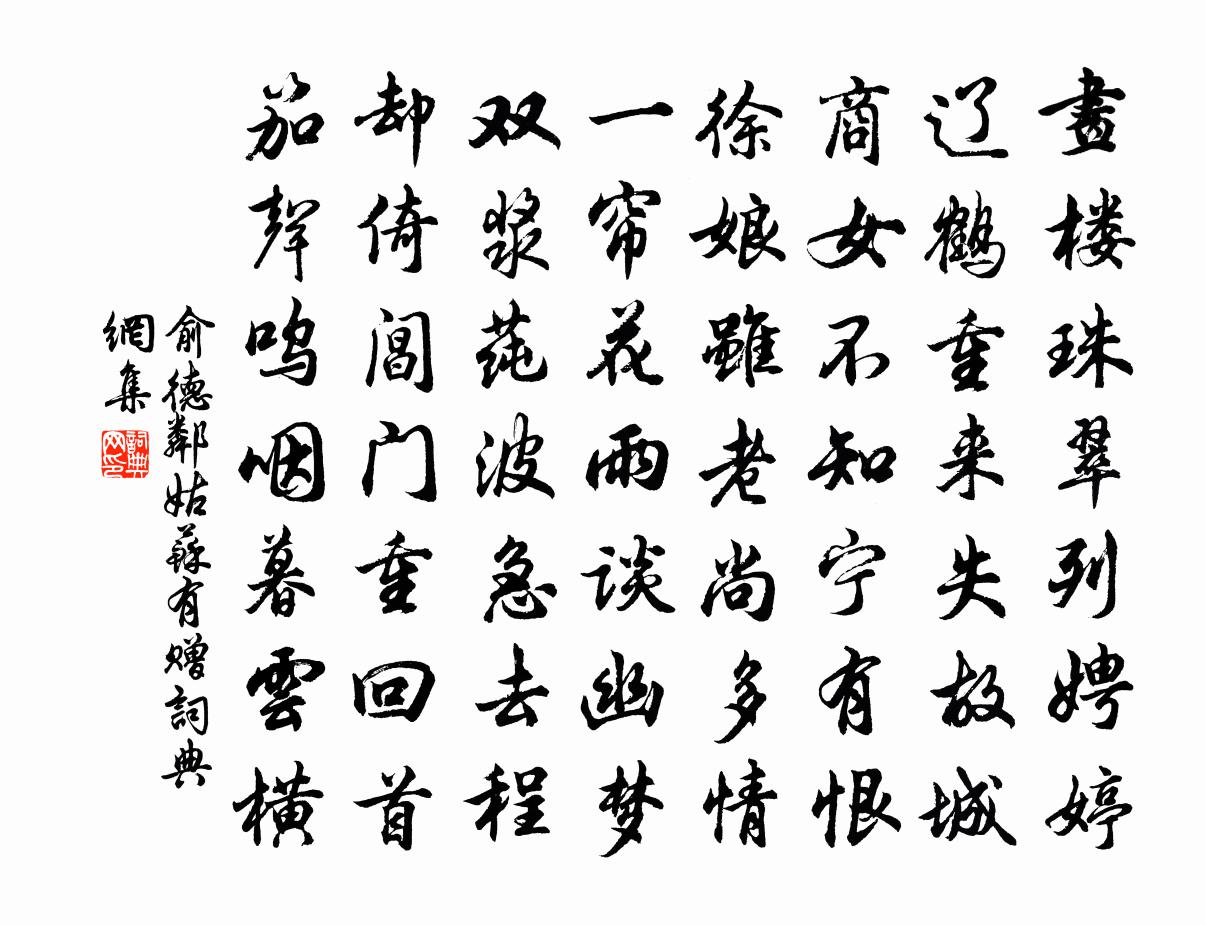 畫楼珠翠列娉婷
辽鹤重来失故城
商女不知宁有恨
徐娘雖老尚多情
一帘花雨谈幽梦
双桨莼波急去程
却倚閶门重回首
笳聲呜咽暮雲横
俞德鄰姑蘇有赠詞典
網集
詞典网印